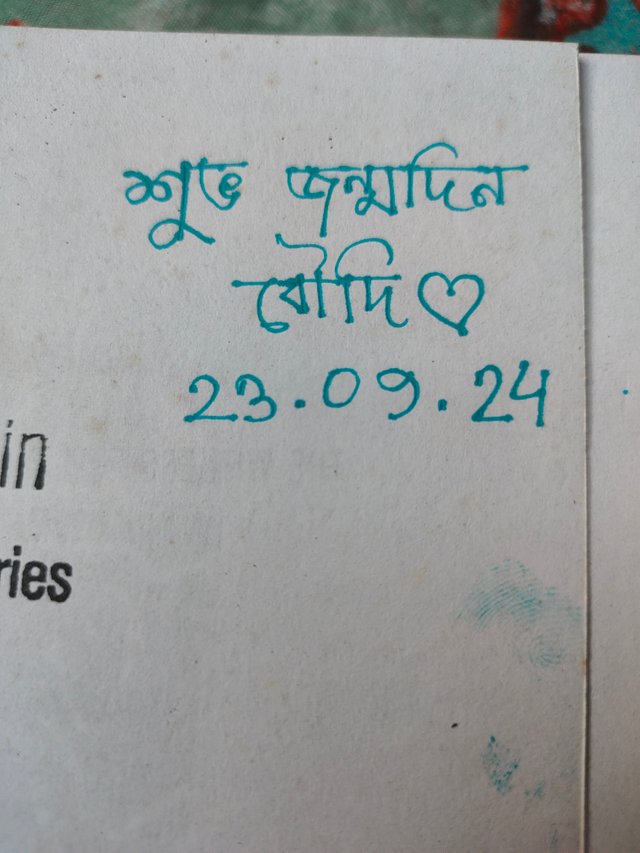 শুভ জন্মদিন
বৌদি ♡
23.09.24
in
ries